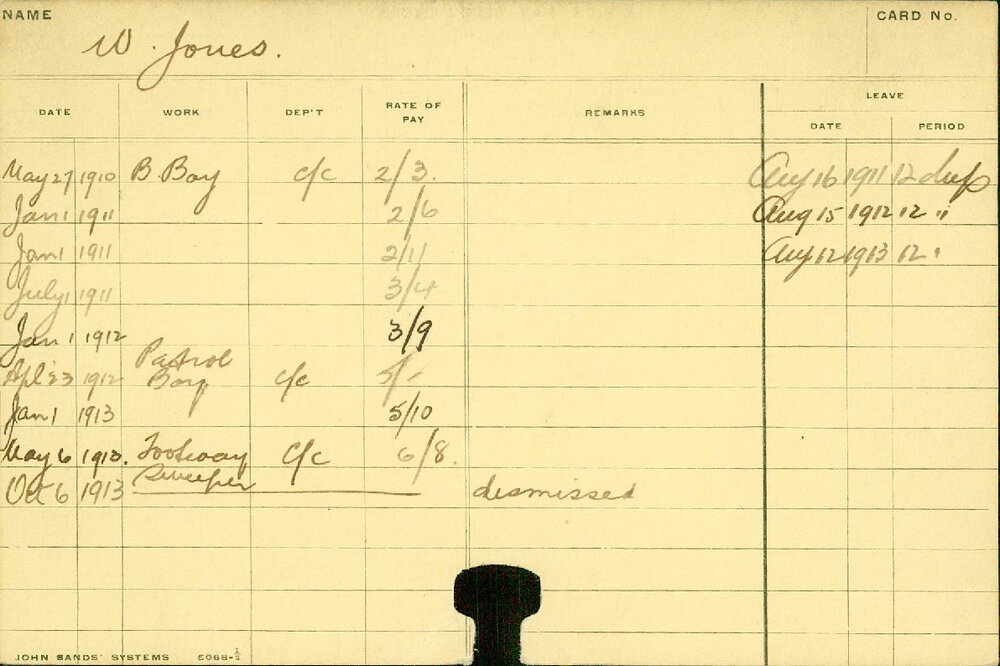 NAME CARD No.
W. Jones.
LEAVE
DATE WORK DEP'T RATE OF PAY REMARKS DATE PERIOD
May 27 1910 B. Boy c/c 2/3. Aug 16 1911 12 days
Jan 1 1911 2/6 Aug 15 1912 12 "
Jan 1 1911 2/11 Aug 12 1913 12 "
July 1 1911 3/4
Jan 1 1912 3/9
Patrol
Apl 23 1912 Boy c/c 5/-
Jan 1 1913 5/10
May 6 1913. Footway c/c 6/8.
Sweeper
Oct 6 1913 dismissed
JOHN SANDS' SYSTEMS 5068-